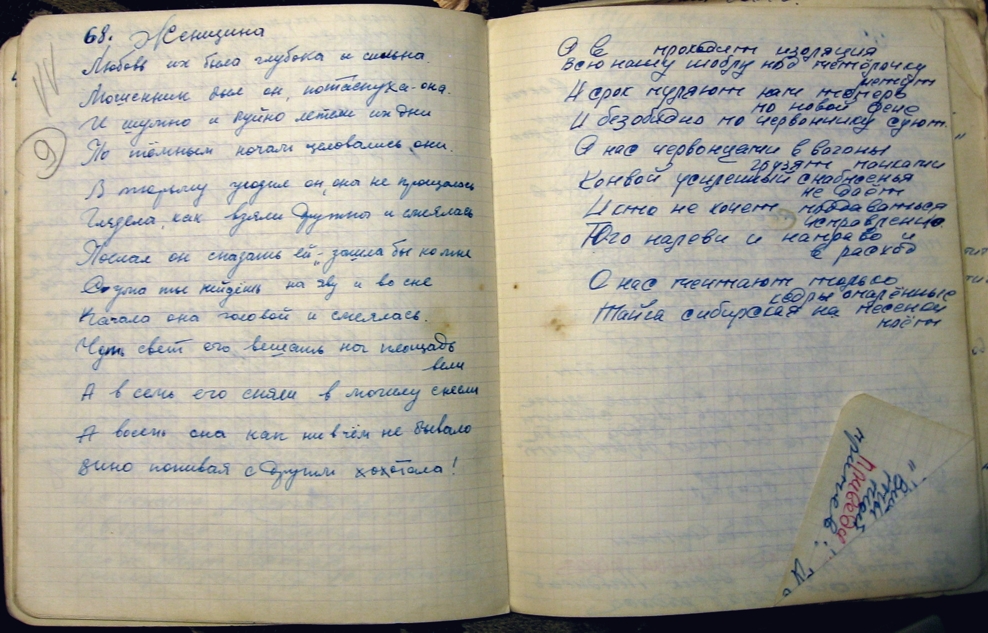 68. Женщина
Любовь их была глубока и сильна.
Мошенник был он, потаскуха-она.
И шумно и буйно летели их дни
По тёмным ночам целовались они.
В тюрьму угодил он, она не прощалась
Глядела, как взяли дружны и смеялась
Послал он сказать ей „зашла бы ко мне
С ума ты нейдёшь на яву и во сне
Качала она головой и смеялась.
Чуть свет его вешать на площадь
вели
А в семь его сняли в могилу снесли
А восемь она как ни в чём не бывало
вино попивая с другим хохотала!
9
А в проходит изоляция
Всю нашу шобру под метёлочку
метут
И срок муляют нам теперь
по новой фене
И безобидно по червончику суют.
А нас червонцами в вагоны
грузят пачками
Конвой усиленный снабженья
не даёт
И кто не хочет поддаваться
исправлению
Того налево и направо и
в расход
А нас мечтают только
кедры опалённые
Тайга сибирская на песеной
"Вот
ты
мой
Приведи